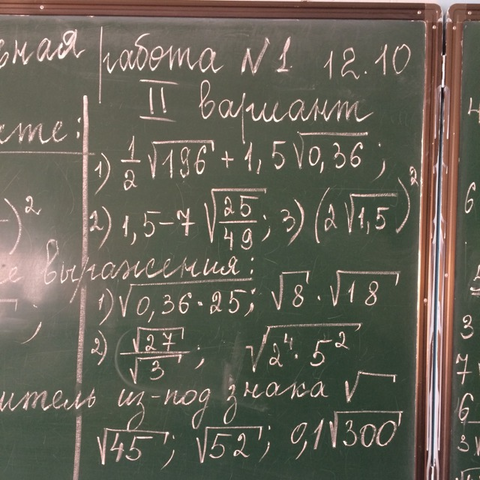 работа N 1 12.10
II вариант
1) 1/2 √196 + 1,5 √0,36 ;
2) 1,5 - 7 √25/49 ; 3) (2 √1,5)²
)²
выражения:
1) √0,36 · 25 ; √8 · √18
;
2) √27/√3 ; √2⁴ · 5²
из-под знака √
√45 ; √52 ; 0,1 √300